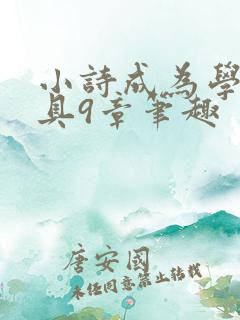 小詩成為學
具9章筆趣
唐安國
未经同意禁止转载